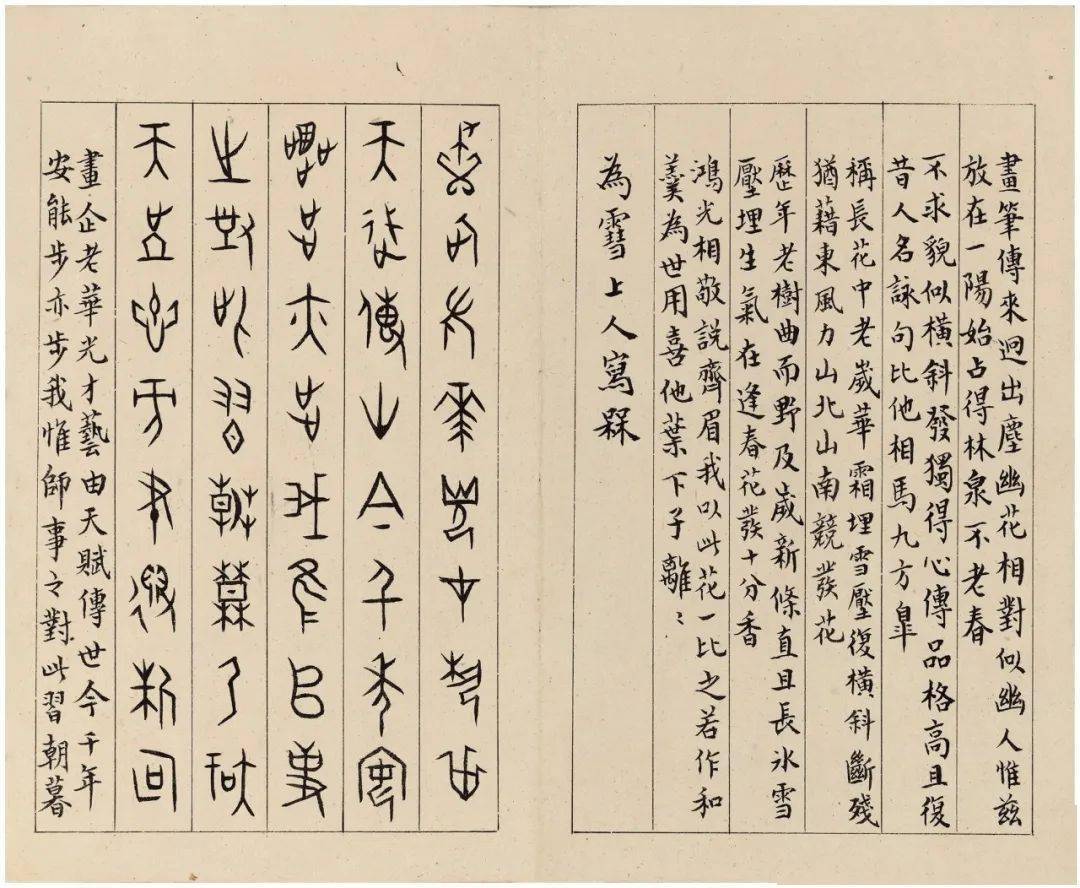 畫筆傳來迥出塵幽花相對似幽人惟茲
放在一陽始占得林泉不老春
不求貌似橫斜發獨得心傳品格高且復
昔人名詠句比他相馬九方皐
稱長花中老歲華霜埋雪壓復橫斜斷殘
猶藉東風力山北山南競發花
歷年老樹曲而野及歲新條直且長氷雪
壓埋生氣在逢春花發十分香
鴻光相敬說齊眉我以此花一比之若作和
羹為世用喜他葉下子離〻
為䨮上人寫槑
畫企老華光才藝由
天賦傳世今千年安
能步亦步我惟師事
之對此習朝暮了
天方新回
畫企老華光才藝由天賦傳世今千年
安能步亦步我惟師事之對此習朝暮